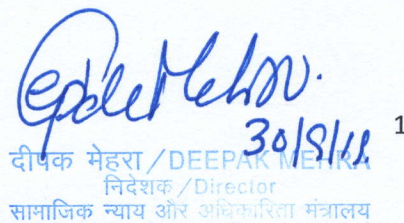 Deepak Mehra.
30/8/18
1
दीपक मेहरा/DEEPAK MEHRA
निदेशक/Director
सामाजिक न्याय और अधिकारिता मंत्रालय